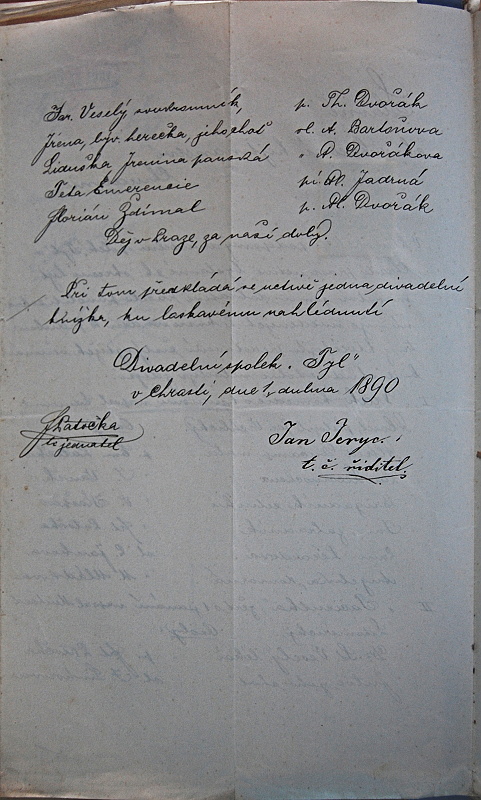 Jar. Veselý soukromník, p. Th. Dvořák
Irena, býv. herečka, jeho choť sl. A. Bartoňova
Liduška, Irenina panská " A. Dvořákova
Teta Emerencie pí. Al. Jadrná
Florián Ždímal p. Al. Dvořák
Děj v Praze, za naší doby.
Při tom předkládá se uctivě jedna divadelní
knížka, ku laskavému nahlédnutí
Divadelní spolek „Tyl"
v Chrasti, dne 1. dubna 1890
jednatel
Jan Jeryc.
t. č. řiditel.